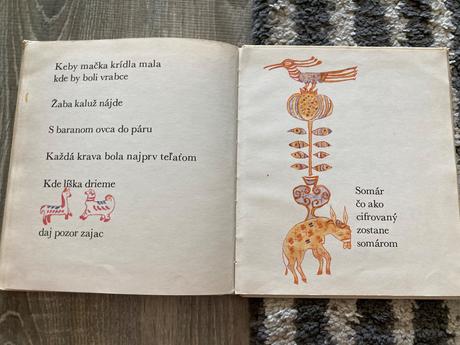 Keby mačka krídla mala
kde by boli vrabce
Žaba kaluž nájde
S baranom ovca do páru
Každá krava bola najprv teľaťom
Kde líška drieme
daj pozor zajac
Somár
čo ako
cifrovaný
zostane
somárom